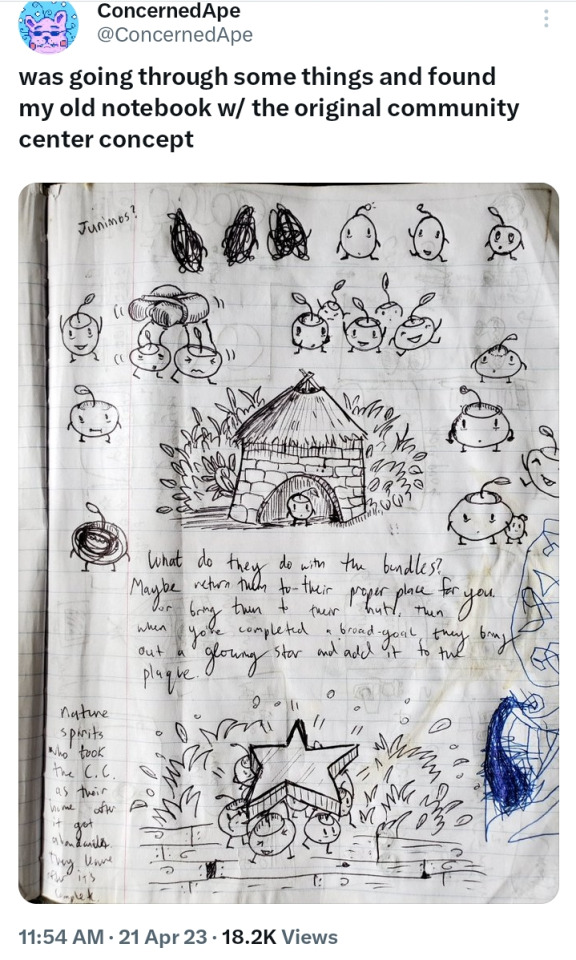 ConcernedApe
@ConcernedApe
was going through some things and found
my old notebook w/ the original community
center concept
Junimos?
What do they do with the bundles?
Maybe return them to their proper place for you.
or bring them to their hut, then
when you've completed a broad-goal, they bring
out a glowing star and add it to the
plaque.
nature
spirits
who took
the C.C.
as their
home after
it got
they leave
it's
11:54 AM · 21 Apr 23 · 18.2K Views